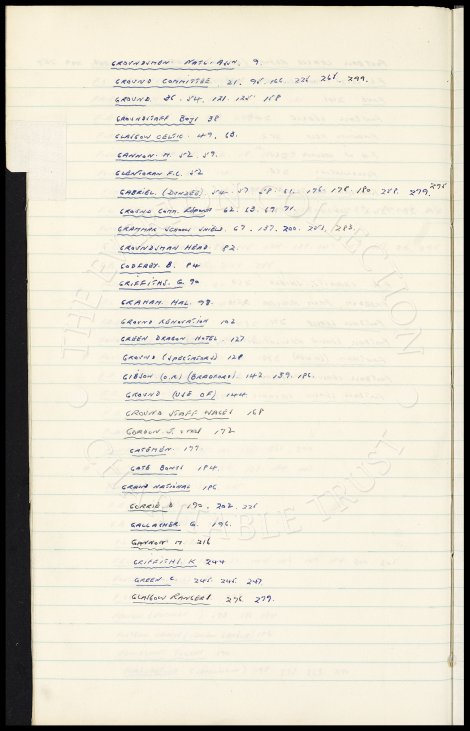 GROUNDSMEN NATL. ASSN. 9.
GROUND COMMITTEE 21. 95. 166. 226. 266. 299.
GROUND 36. 54. 121. 125. 158
GROUNDSTAFF BOYS 38
GLASGOW CELTIC. 49. 63.
GANNON. M. 52. 59.
GLENTORAN F.C. 52
GABRIEL (DUNDEE) 54. 57. 58. 61. 176. 178. 180. 258. 279. 295
GROUND COMM. REPORT 62. 63. 69. 71.
GRAMMAR SCHOOL SHIELD. 67. 157. 200. 251. 283.
GROUNDSMAN HEAD. 82.
GODFREY. B. 84
GRIFFITHS. G. 90
GRAHAM. HAL. 98.
GROUND RENOVATION 102
GREEN DRAGON HOTEL. 127
GROUND (SPECTATORS) 128
GIBSON (O.R.) (BRADFORD) 142. 159. 186.
GROUND (USE OF) 144
GROUND STAFF WAGES 168
GORDON J. 172
GATEMEN. 177.
GATE BONUS 184.
GRAND NATIONAL 186
GORRIE D 190. 202. 226
GALLAGHER G. 196.
GANNON M. 216
GRIFFITHS K 244
GREEN C. 245. 246. 247
GLASGOW RANGERS 276. 279.
THE EVERTON COLLECTION
CHARITABLE TRUST